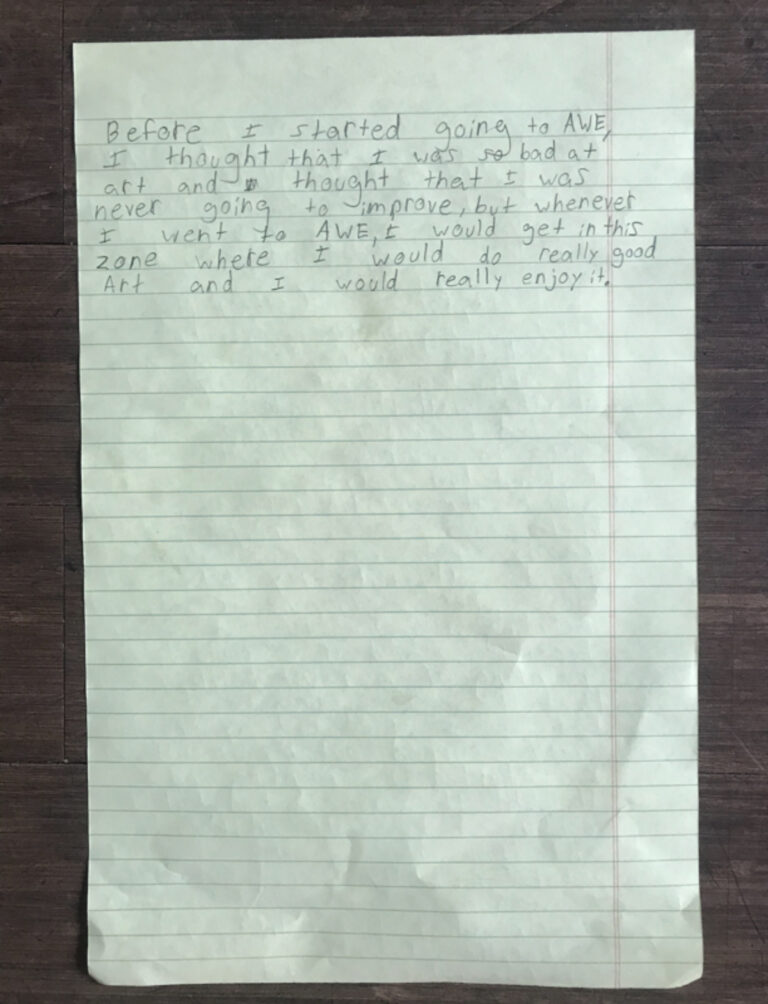 Before I started going to AWE,
I thought that I was so bad at
art and thought that I was
never going to improve, but whenever
I went to AWE, I would get in this
zone where I would do really good
Art and I would really enjoy it.